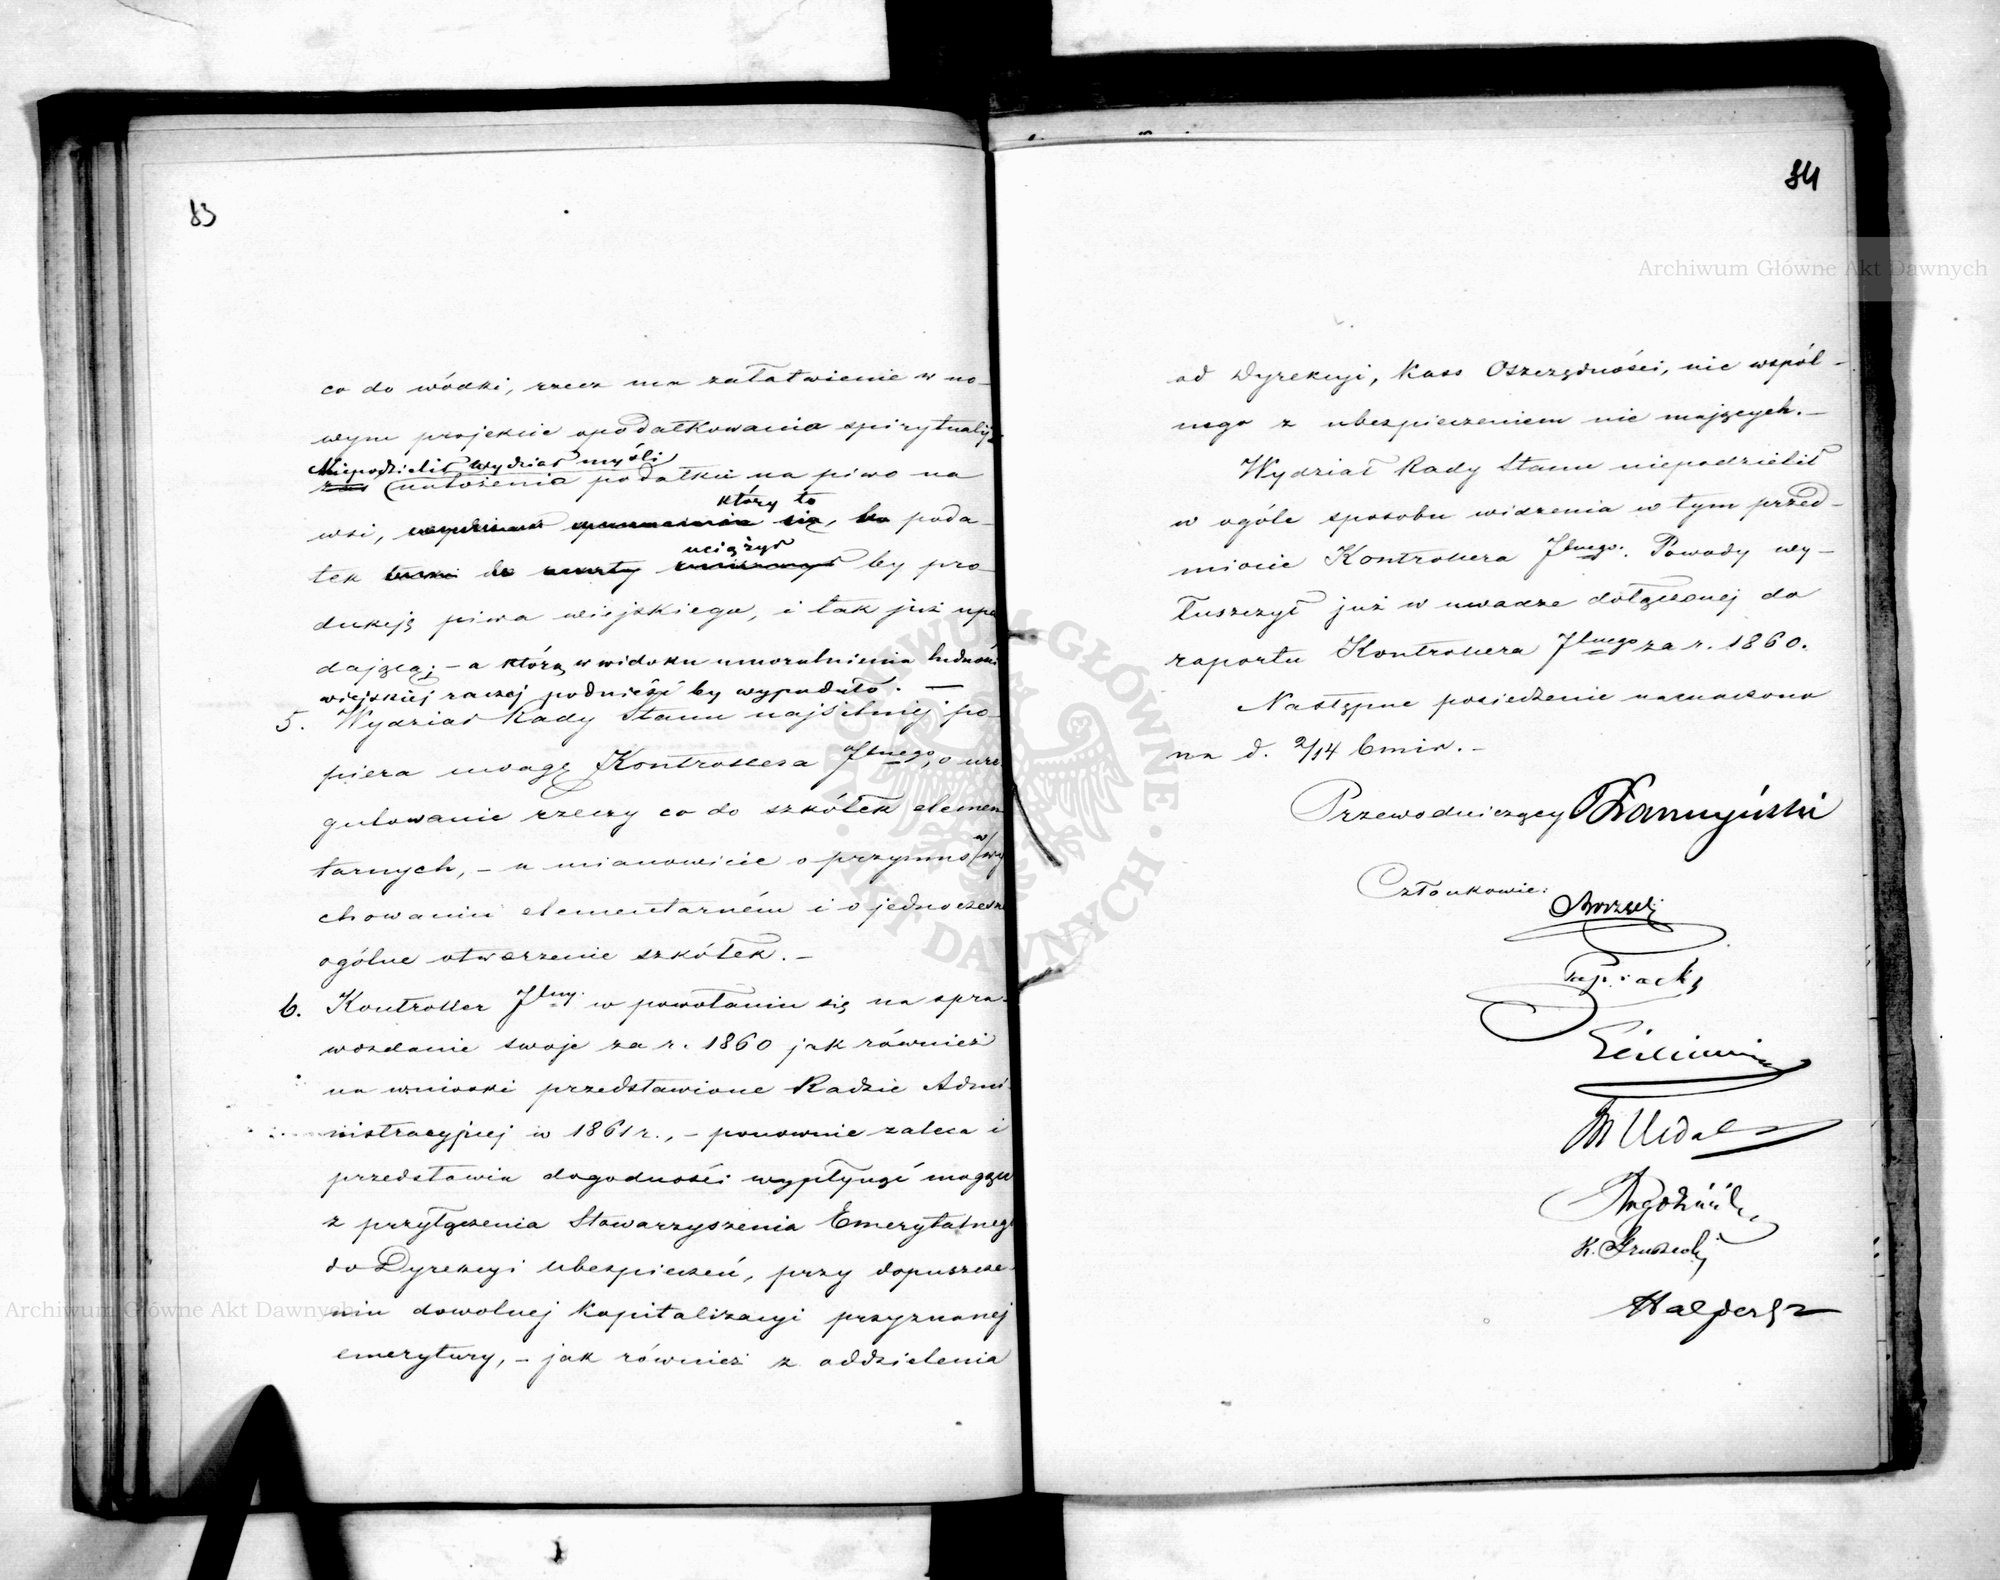 83
co do wódki, rzecz ma załatwienie w no-
wym projekcie opodatkowania spirytualij
Niepodzielił Wydział myśli
zaś nałożenia podatku na piwo na
który to
wsi, się, bo poda-
uciążył
tek by pro-
dukcję piwa wiejskiego, i tak już upa
dającą; – a którą w widoku umoralnienia ludności
wiejskiej raczej podnieść by wypadało. —
5. Wydział Rady Stanu najsilniej po-
piera uwagę Kontrollera Jlnego, o ure
gulowanie rzeczy co do szkółek elemen
tarnych, – a mianowicie o przymus w/wy
chowaniu elementarném i o jednoczesne
ogólne otworzenie szkółek. –
6. Kontroller Jlny. w powołaniu się na spra-
wozdanie swoje za r. 1860 jak również
na wnioski przedstawione Radzie Admi-
nistracyjnej w 1861 r., – ponownie zaleca i
przedstawia dogodności wypłynąć mogące
z przyłączenia Stowarzyszenia Emerytalnego
do Dyrekcyi Ubezpieczeń, przy dopuszcze-
niu dowolnej kapitalizacyi przyznanej
emerytury, – jak również z oddzielenia
84
od Dyrekcyi, Kass Oszczędności, nic wspól-
nego z ubezpieczeniem nie mających. –
Wydział Rady Stanu niepodzielił
w ogóle sposobu widzenia w tym przed-
miocie Kontrollera Jlnego. Powody wy-
łuszczył już w uwadze dołączonej do
raportu Kontrollera Jlnego za r. 1860.
Następne posiedzenie naznaczono
na d. 2/14 bmis. –
Przewodniczący
Członkowie:
K. Gruszecki
Halpert
Archiwum Główne Akt Dawnych
Archiwum Główne Akt Dawnych
ARCHIWUM GŁÓWNE · AKT DAWNYCH ·